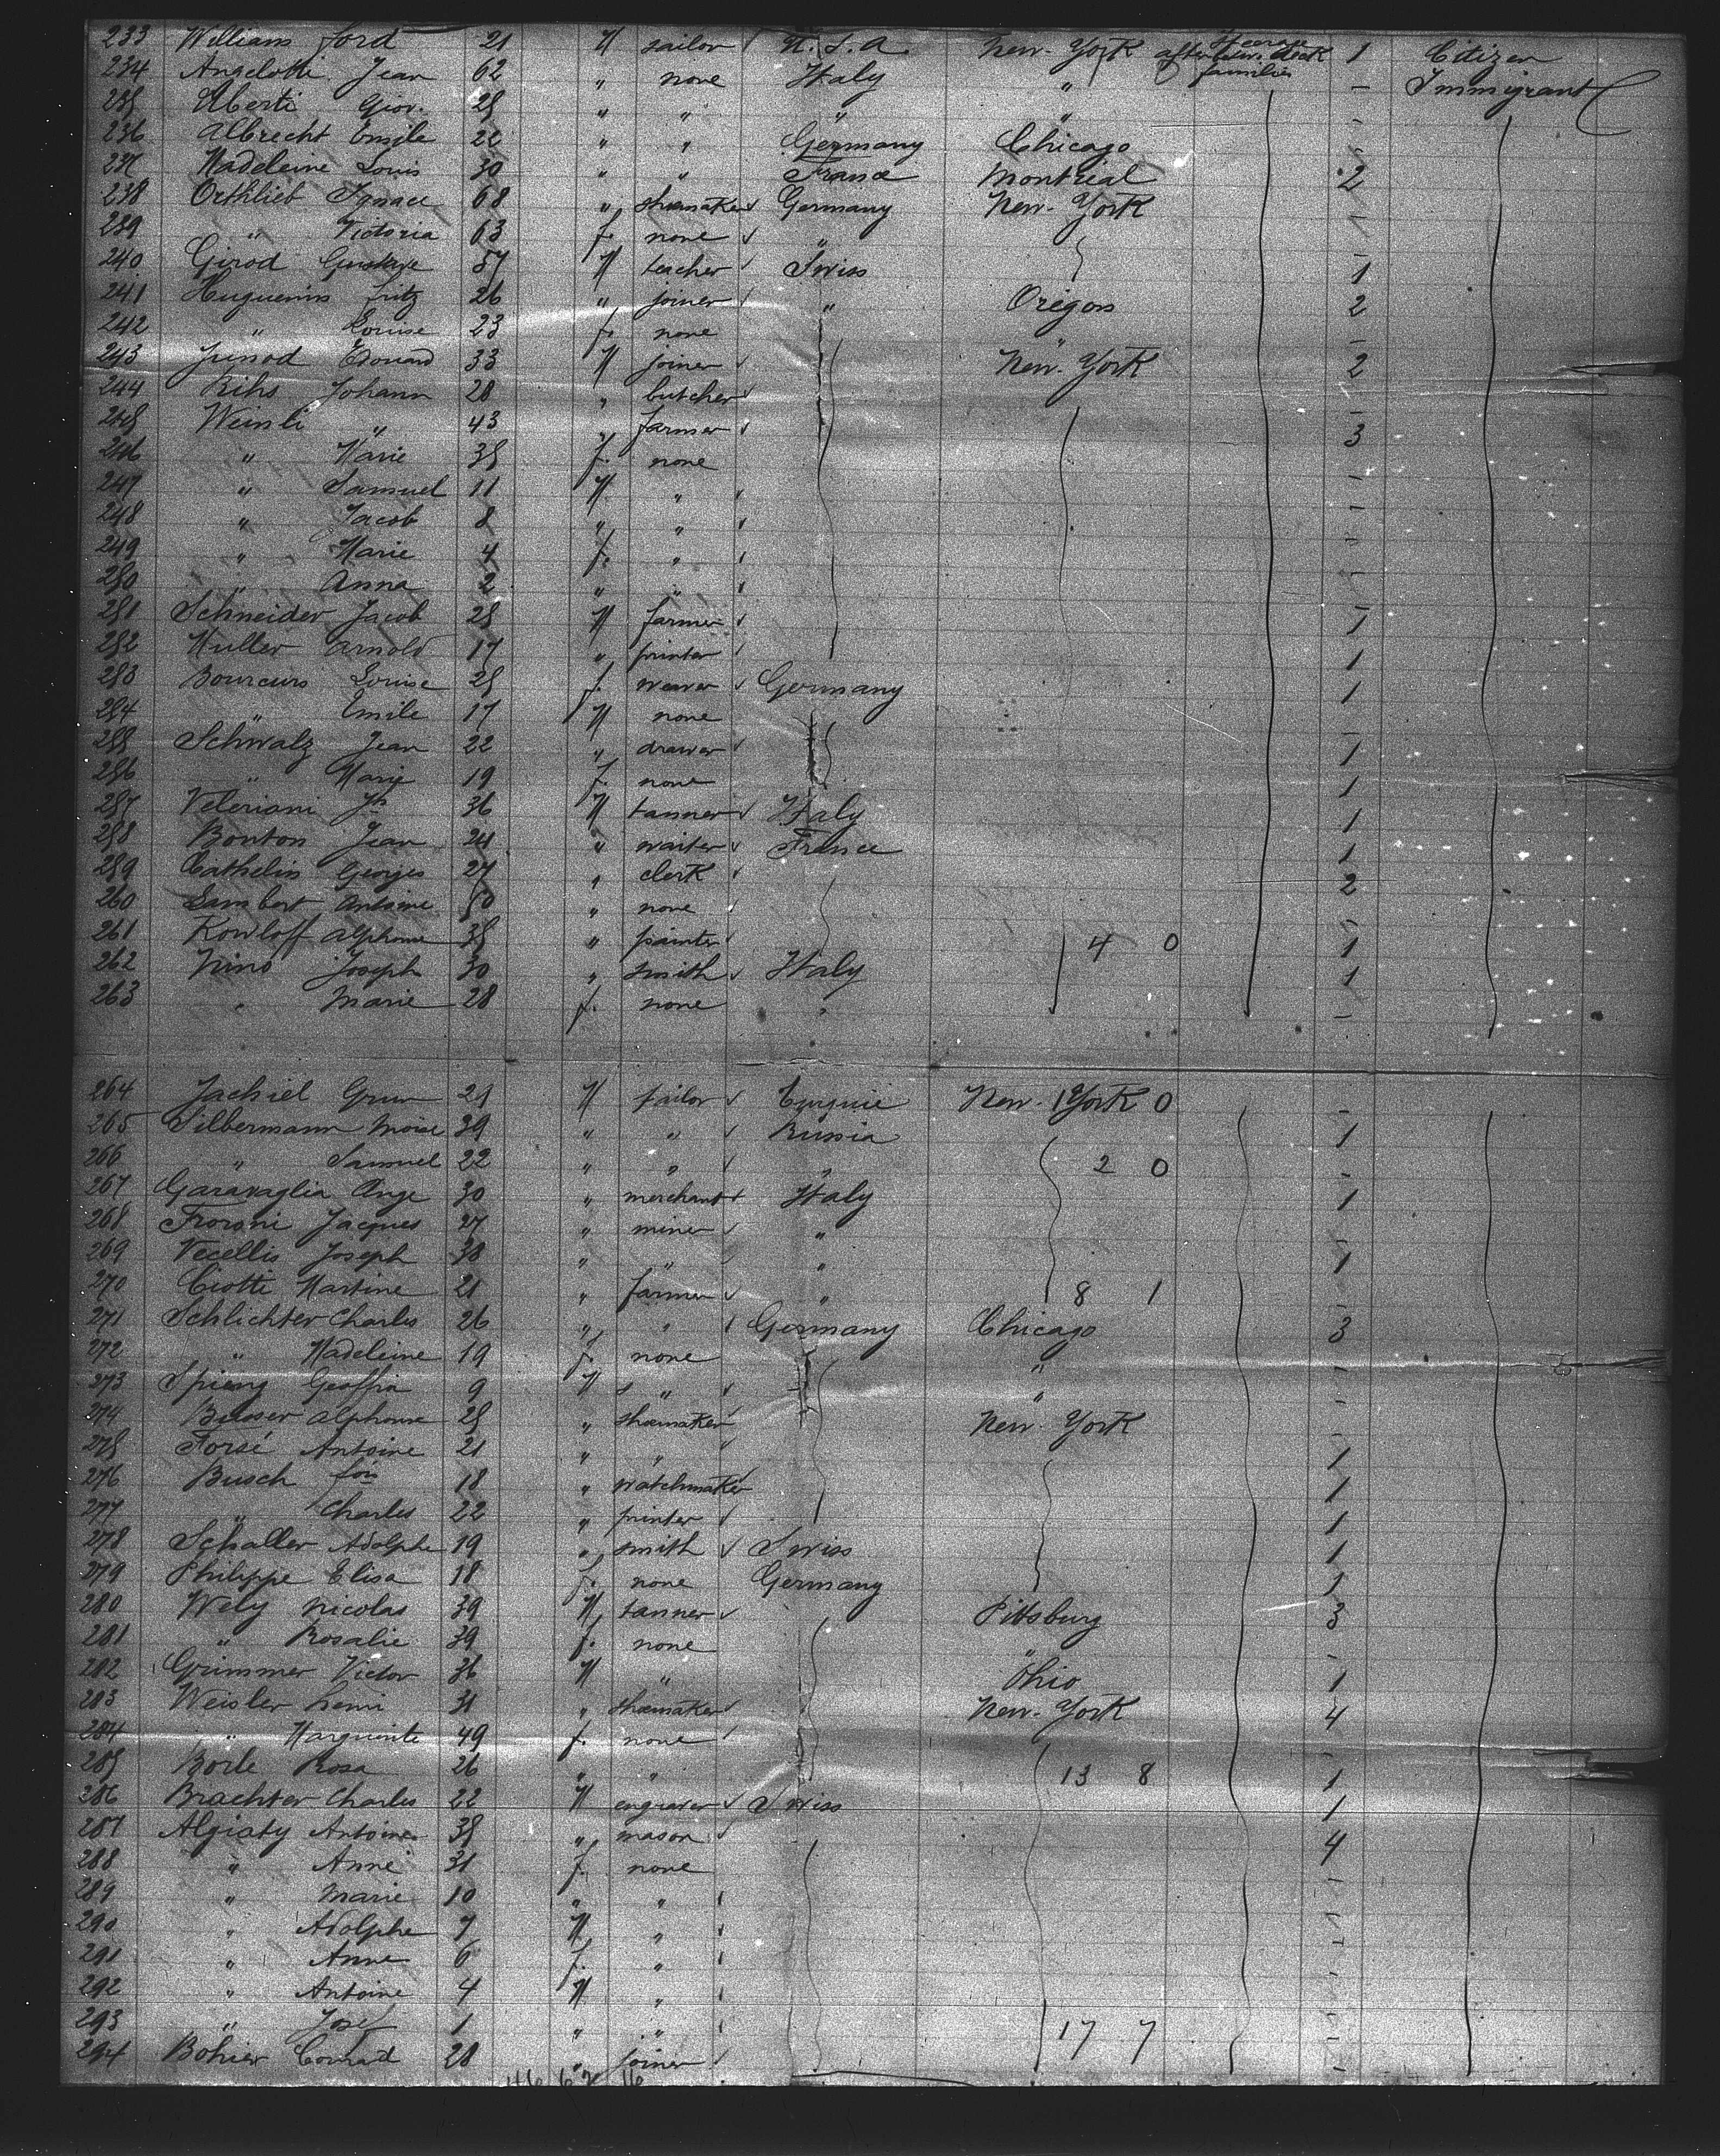 233 Williams Ford 21 M sailor U.S.A. New-York Steerage after betw. deck families 1 Citizen
234 Angelotti Jean 62 " none Italy " - Immigrant
235 Uberti Giov. 25 " " " " -
236 Albrecht Emile 22 " " Germany Chicago -
237 Madeleine Louis 30 " " France Montreal 2
238 Orthlieb Ignace 68 " shoemaker Germany New-York -
239 " Victoria 63 f. none " -
240 Girod Gustave 57 M teacher Swiss 1
241 Huguenin Fritz 26 " joiner " Oregon 2
242 " Louise 23 f. none " -
243 Junod Edouard 33 M joiner New-York 2
244 Rihs Johann 28 " butcher -
245 Weinli " 43 " farmer 3
246 " Marie 35 f. none -
247 " Samuel 11 M " -
248 " Jacob 8 " " -
249 " Marie 4 f. " -
250 " Anna 2 " " -
251 Schneider Jacob 25 M farmer 1
252 Muller Arnold 17 " printer 1
253 Bourcurs Louise 25 f. weaver Germany 1
254 " Emile 17 M none -
255 Schwalz Jean 22 " drawer 1
256 " Marie 19 f. none 1
257 Veleriani Jh 36 M tanner Italy 1
258 Bonton Jean 24 " waiter France 1
259 Cathelin Georges 27 " clerk 2
260 Lambert Antoine 50 " none -
261 Kowloff Alphonse 35 " painter 4 0 1
262 Nino Joseph 30 " smith Italy 1
263 " Marie 28 f. none " -
264 Jachiel Grun 25 M tailor Turquie New-York 1 0 -
265 Silbermann Moise 39 " " Russia 1
266 " Samuel 22 " " " 2 0 -
267 Garavaglia Ange 30 " merchant Italy 1
268 Froroni Jacques 27 " miner " -
269 Vecellis Joseph 38 " " " 1
270 Ciotti Martine 21 " farmer " 8 1 -
271 Schlichter Charles 26 " " Germany Chicago 3
272 " Madeleine 19 f. none " -
273 Spieng 9 M " " -
274 Busser Alphonse 25 " shoemaker New-York -
275 Forsé Antoine 21 " " 1
276 Busch fois 18 " watchmaker 1
277 " Charles 22 " printer 1
278 Schaller Adolphe 19 " smith Swiss 1
279 Philippe Elisa 18 f. none Germany 1
280 Wely Nicolas 39 M tanner Pittsburg 3
281 " Rosalie 39 f. none " -
282 Grimmer Victor 36 M " Ohio 1
283 Weisler henri 31 " shoemaker New-York 4
284 " Marguerite 49 f. none -
285 Boile Rosa 26 " " 13 8 1
286 Brachter Charles 22 M engraver Swiss 1
287 Algiaty Antoine 35 " mason 4
288 " Anne 31 f. none -
289 " Marie 10 " " -
290 " Adolphe 7 M " -
291 " Anne 6 f. " -
292 " Antoine 4 M " -
293 " Josef 1 " " 17 7 -
294 Bohier Conrad 28 " joiner -